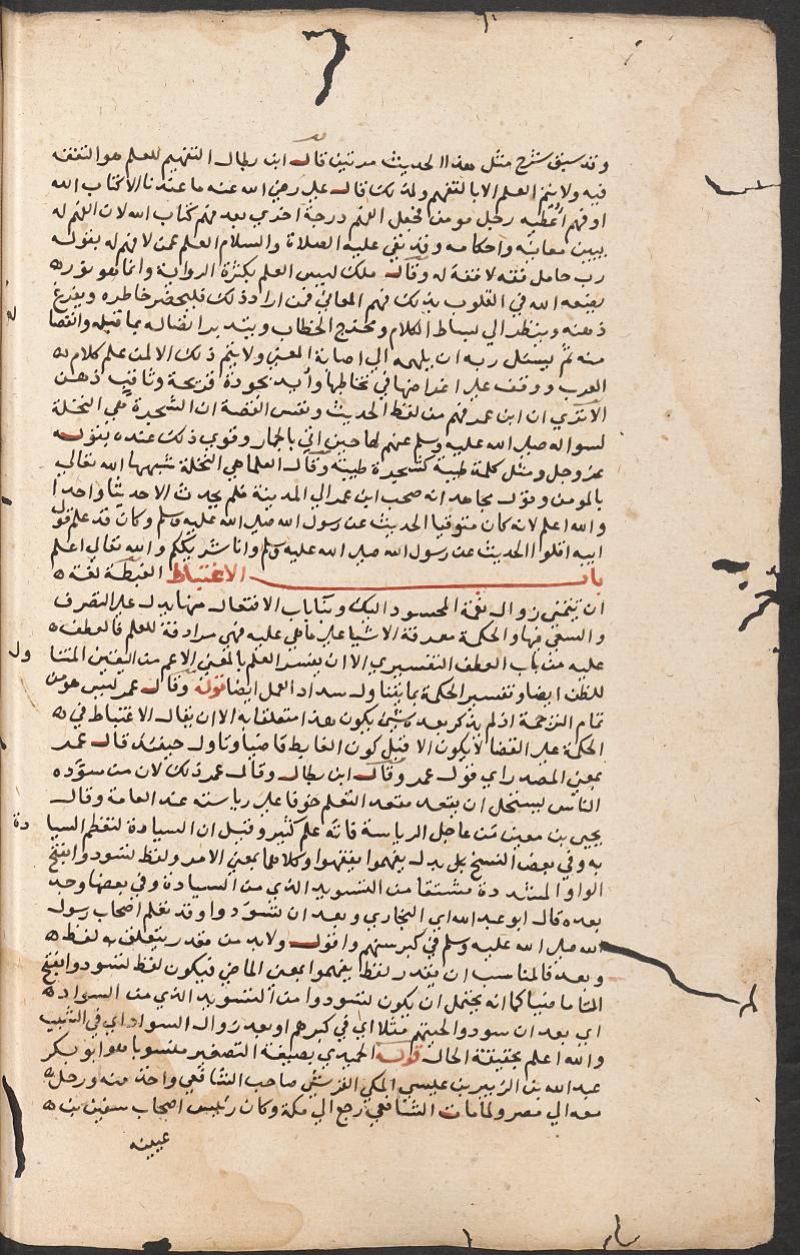 وقد سبق شرح مثل هذا الحديث مرتين قال ابن بطال التفهيم للعلم هو التفقه
فيه ولا يتم العلم الا بالتفهم ولذلك قال علي رضي الله عنه ما عندنا الا كتاب الله
او فهم اعطيه رجل مومن فجعل الفهم درجة اخري بعد فهم كتاب الله لان الفهم له
يبين معانيه واحكامه وقد نفي عليه الصلاة والسلام العلم عمن لا فهم له بقوله
رب حامل فقه لا فقه له وقال ملك ليس العلم بكثرة الرواية وانما هو نور
يضعه الله في القلوب بذلك فهم المعاني فمن اراد ذلك فليحضر خاطره ويفرغ
ذهنه وينظر الي بساط الكلام ومخرج الخطاب ويتدبر اتصاله بما قبله وانفصا
منه ثم يسئل ربه ان يلهمه الي اصابة المعني ولا يتم ذلك الا لمن علم كلام
العرب ووقف علي اغراضها في تخاطبها وأيد بجودة قريحة وثاقب ذهن
الا تري ان ابن عمر فهم من لفظ الحديث ونفس القصة ان الشجرة هي النخلة
لسواله صلي الله عليه وسلم عنهم لها حين اتي بالجمار وقوي ذلك عنده بقوله
عز وجل ومثل كلمة طيبة كشجرة طيبة وقال العلما هي النخلة شبهها الله تعالي
بالمومن وقول مجاهد انه صحب ابن عمر الي المدينة فلم يحدث الا حديثا واحدا
والله اعلم لانه كان متوقيا الحديث عن رسول الله صلي الله عليه وسلم وكان قد علم قول
ابيه اقلوا الحديث عن رسول الله صلي الله عليه وسلم وانا شريككم والله تعالي اعلم
باب الاغتباط الغبطة لغة
ان يتمني زوال نعمة المحسود اليك وبناباب الافتعال منها يدل علي التصرف
والسعي فيها والحكمة معرفة الاشيا علي ما هي عليه فهي مرادفة للعلم فالعطف
عليه من باب العطف التفسيري الا ان يفسر العلم بالمعني الاعم من اليقين المتنا ول
للظن ايضا وتفسير الحكمة بما يتناول سداد العمل ايضا قوله وقال عمر ليس هو من
تمام الترجمة اذ لم يذكر بعده شي يكون هذا متعلقا به الا ان يقال الاغتباط في
الحكمة علي القضا لا يكون الا قبل كون الغابط قاضيا وتاول حينئذ قال عمر
بمعني المصدر اي قول عمر وقال ابن بطال وقال عمر ذلك لان من سوّده
الناس يستحي ان يقعد مقعد التعلم خوفا علي رياسته عند العامة وقال
يحيي بن معين من عاجل الرياسة فاته علم كثير وقيل ان السيادة لتعظم السيا دة
به وفي بعض النسخ بل بدل يفهموا يفقهوا وكلاهما بمعني الامر ولفظ تسودوا بفتح
الواو المشددة مشتقا من التسويد الذي من السيادة وفي بعضها وجد
بعده قال ابو عبد الله اي البخاري وبعد ان تسوّدوا وقد تعلم اصحاب رسول
الله صلي الله عليه وسلم في كبر سنهم واقول ولا بد من مقدر يتعلق به لفظ
وبعد فالمناسب ان يقدر لفظ يفهموا بمعني الماضي فيكون لفظ تسودوا بفتح
التا ماضيا كما انه يحتمل ان يكون تسودوا من التسويد الذي من السواد
اي بعد ان سودوا لحيتهم مثلا اي في كبرهم او بعد زوال السواد اي في الشيب
والله اعلم بحقيقة الحال قوله الحميدي بصيغة التصغير منسوبا هو ابو بكر
عبد الله بن الزبير بن عيسي المكي القرشي صاحب الشافعي واخذ منه ورحل
معه الي مصر ولما مات الشافعي رجع الي مكة وكان رئيس اصحاب سفين بن
عيينه